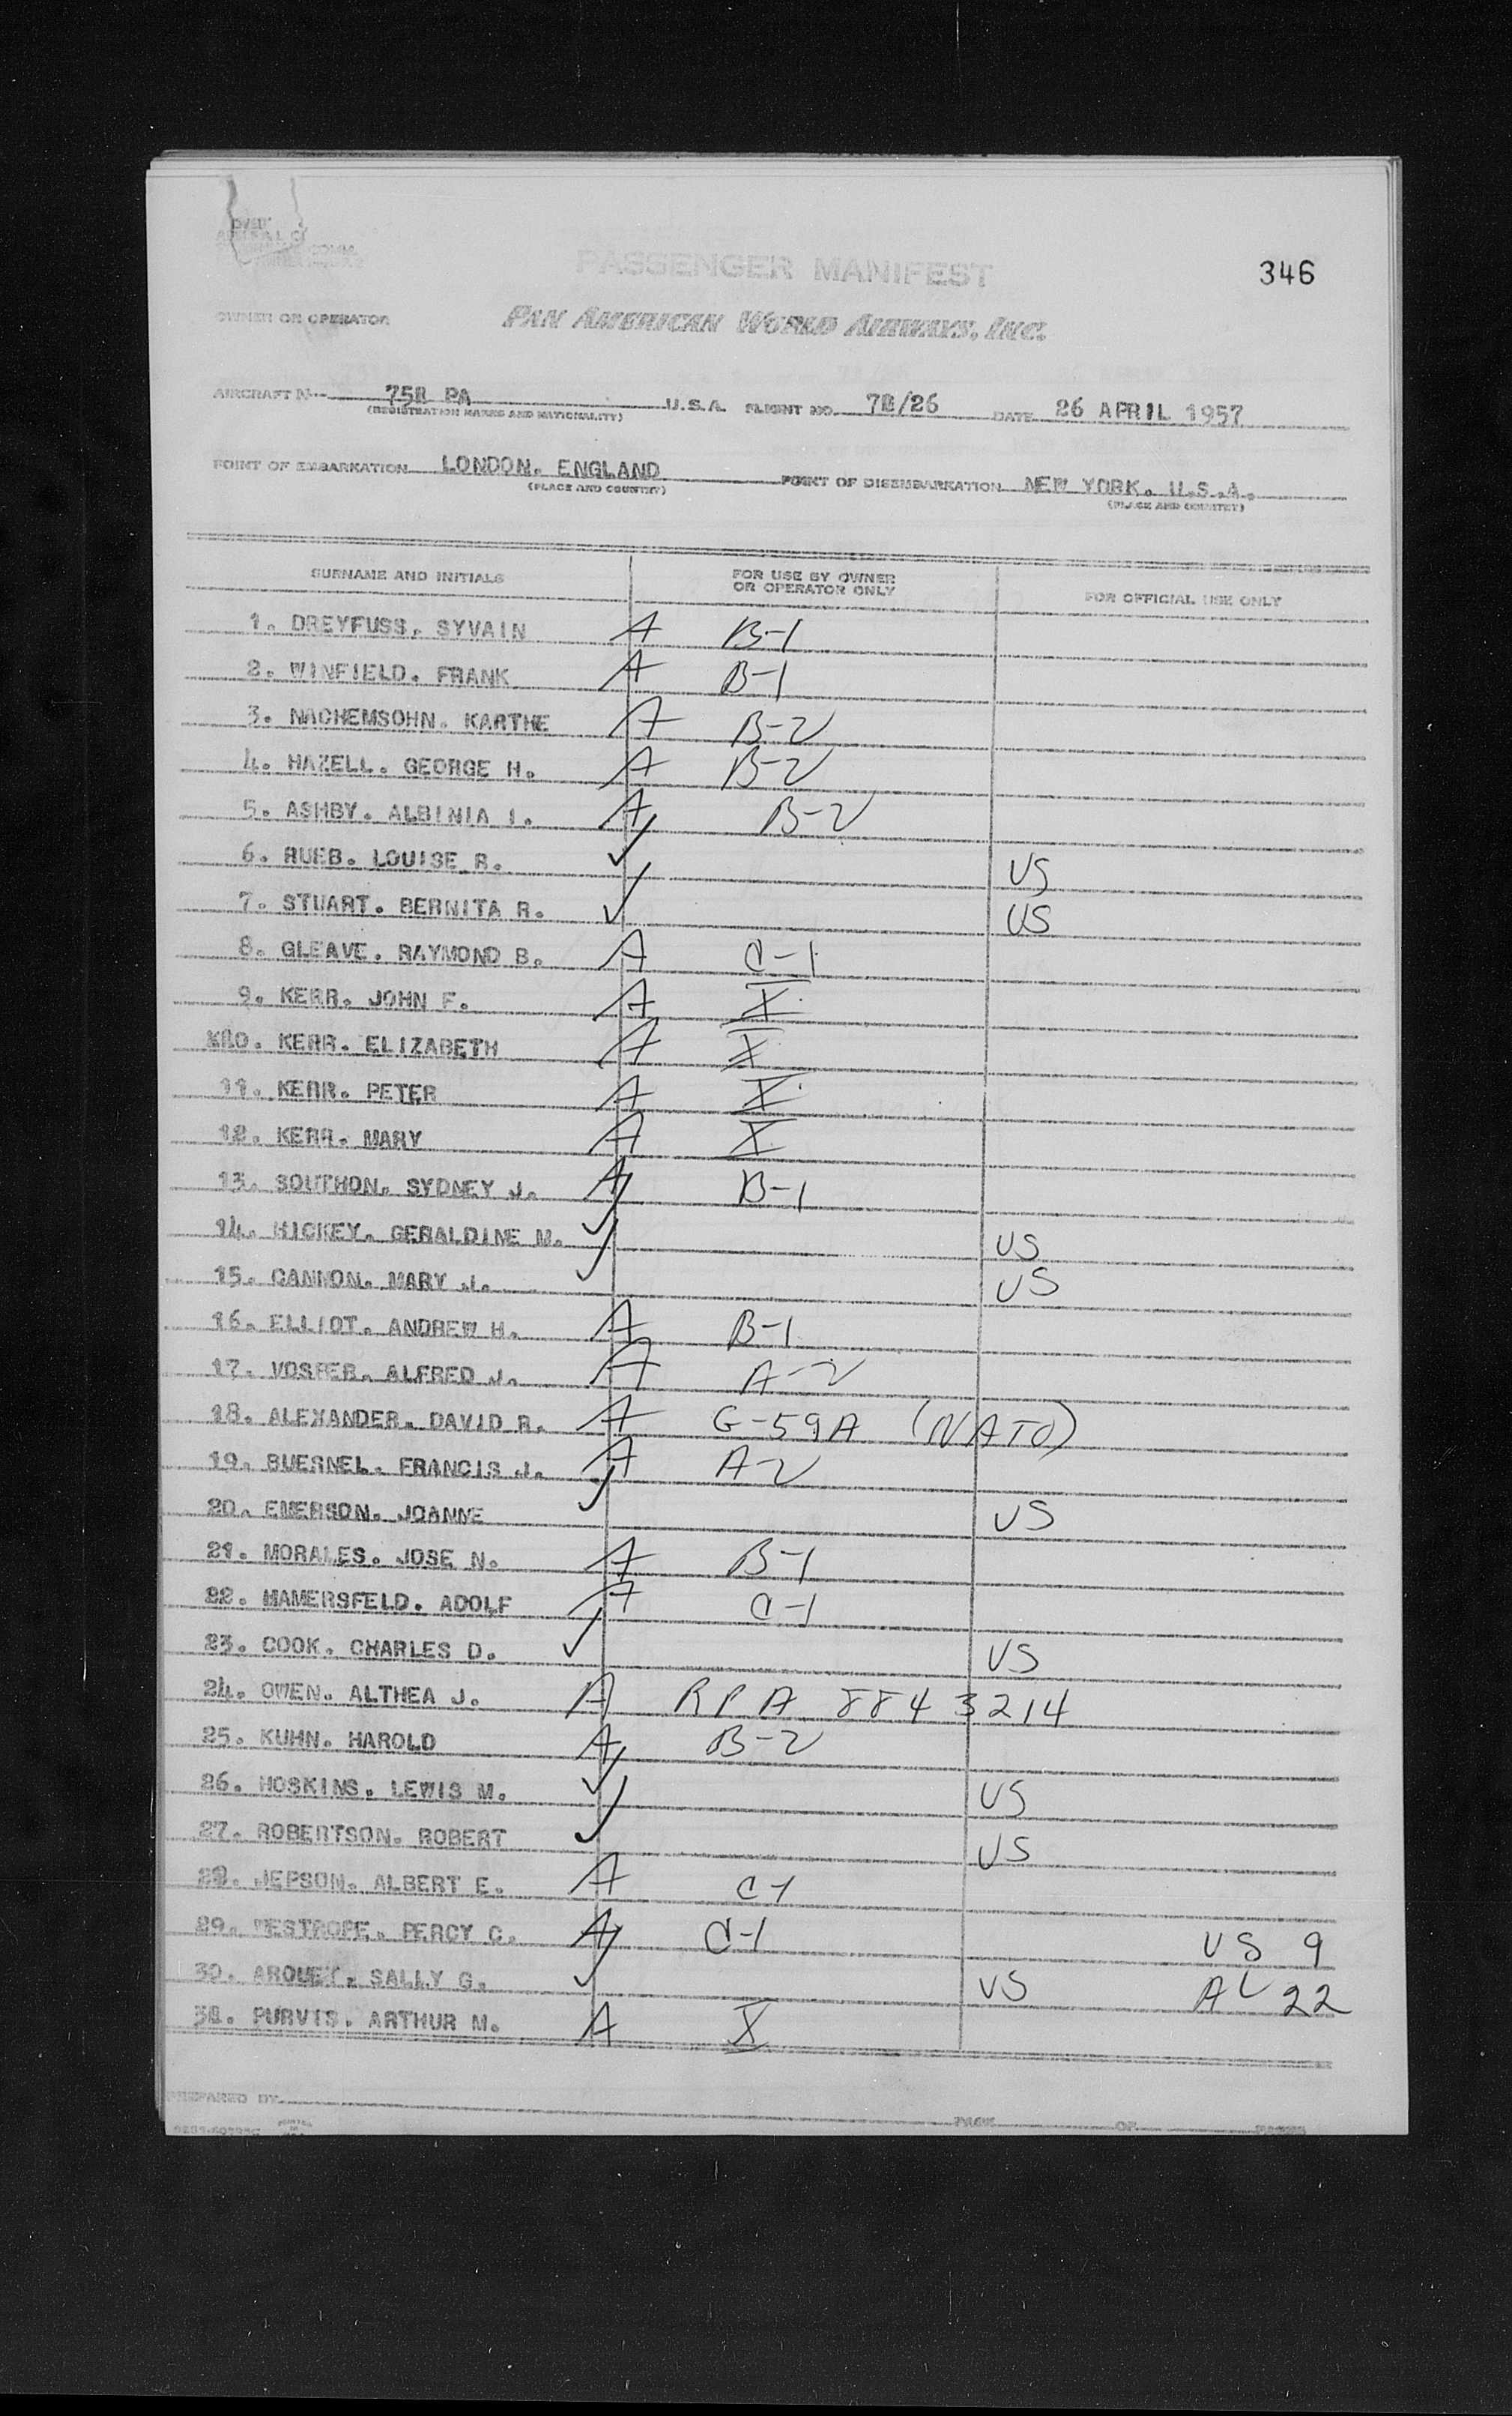 346
PASSENGER MANIFEST
OWNER OR OPERATOR PAN AMERICAN WORLD AIRWAYS, INC.
AIRCRAFT N U.S.A. FLIGHT NO. DATE 26 APRIL 1957
(REGISTRATION MARKS AND NATIONALITY)
POINT OF EMBARKATION LONDON. ENGLAND POINT OF DISEMBARKATION NEW YORK. U.S.A.
(PLACE AND COUNTRY) (PLACE AND COUNTRY)
SURNAME AND INITIALS FOR USE BY OWNER OR OPERATOR ONLY FOR OFFICIAL USE ONLY
1. DREYFUSS. SYVAIN A B-1
2. WINFIELD. FRANK A B-1
3. NACHEMSOHN. KARTHE A B-2
4. HAZELL. GEORGE H. A B-2
5. ASHBY. ALBINIA I. A B-2
6. RUEB. LOUISE R. ✓ US
7. STUART. BERNITA R. ✓ US
8. GLEAVE. RAYMOND B. A C-1
9. KERR. JOHN F. A X
10. KERR. ELIZABETH A X
11. KERR. PETER A X
12. KERR. MARY A X
13. SOUTHON. SYDNEY J. A B-1
14. HICKEY. GERALDINE M. ✓ US
15. CANNON. MARY J. ✓ US
16. ELLIOT. ANDREW H. A B-1
17. VOSPER. ALFRED J. A A-2
18. ALEXANDER. DAVID R. A G-59A (NATO)
19. BUESNEL. FRANCIS J. A A-2
20. EMERSON. JOANNE ✓ US
21. MORALES. JOSE N. A B-1
22. MAMERSFELD. ADOLF A C-1
23. COOK. CHARLES D. ✓ US
24. OWEN. ALTHEA J. A RPA 8843214
25. KUHN. HAROLD A B-2
26. HOSKINS. LEWIS M. ✓ US
27. ROBERTSON. ROBERT ✓ US
28. JEPSON. ALBERT E. A C-1
29. WESTROPE. PERCY C. A C-1 US 9
30. SALLY G. ✓ US AL 22
31. PURVIS. ARTHUR M. A X
PREPARED BY PAGE OF PAGES